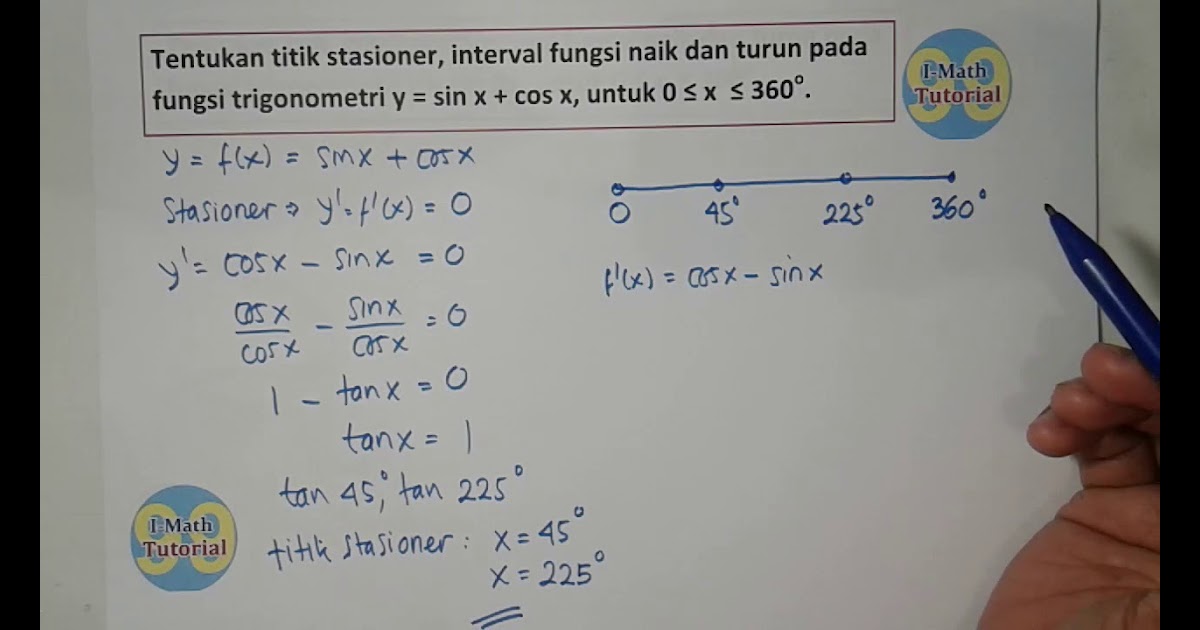 Tentukan titik stasioner, interval fungsi naik dan turun pada
fungsi trigonometri y = sin x + cos x, untuk 0 ≤ x ≤ 360°.
I-Math
Tutorial
y = f(x) = sin x + cos x
Stasioner ⇒ y' = f'(x) = 0
y' = cos x – sin x = 0
cos x / cos x – sin x / cos x = 0
1 – tan x = 0
tan x = 1
tan 45°, tan 225°
titik stasioner : x = 45°
x = 225°
0 45° 225° 360°
f'(x) = cos x – sin x
I-Math
Tutorial